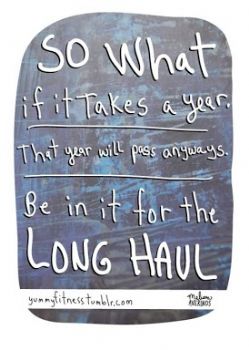 So What
if it Takes a year.
That year will pass anyways.
Be in it for the
LONG HAUL
yummyfitness.tumblr.com